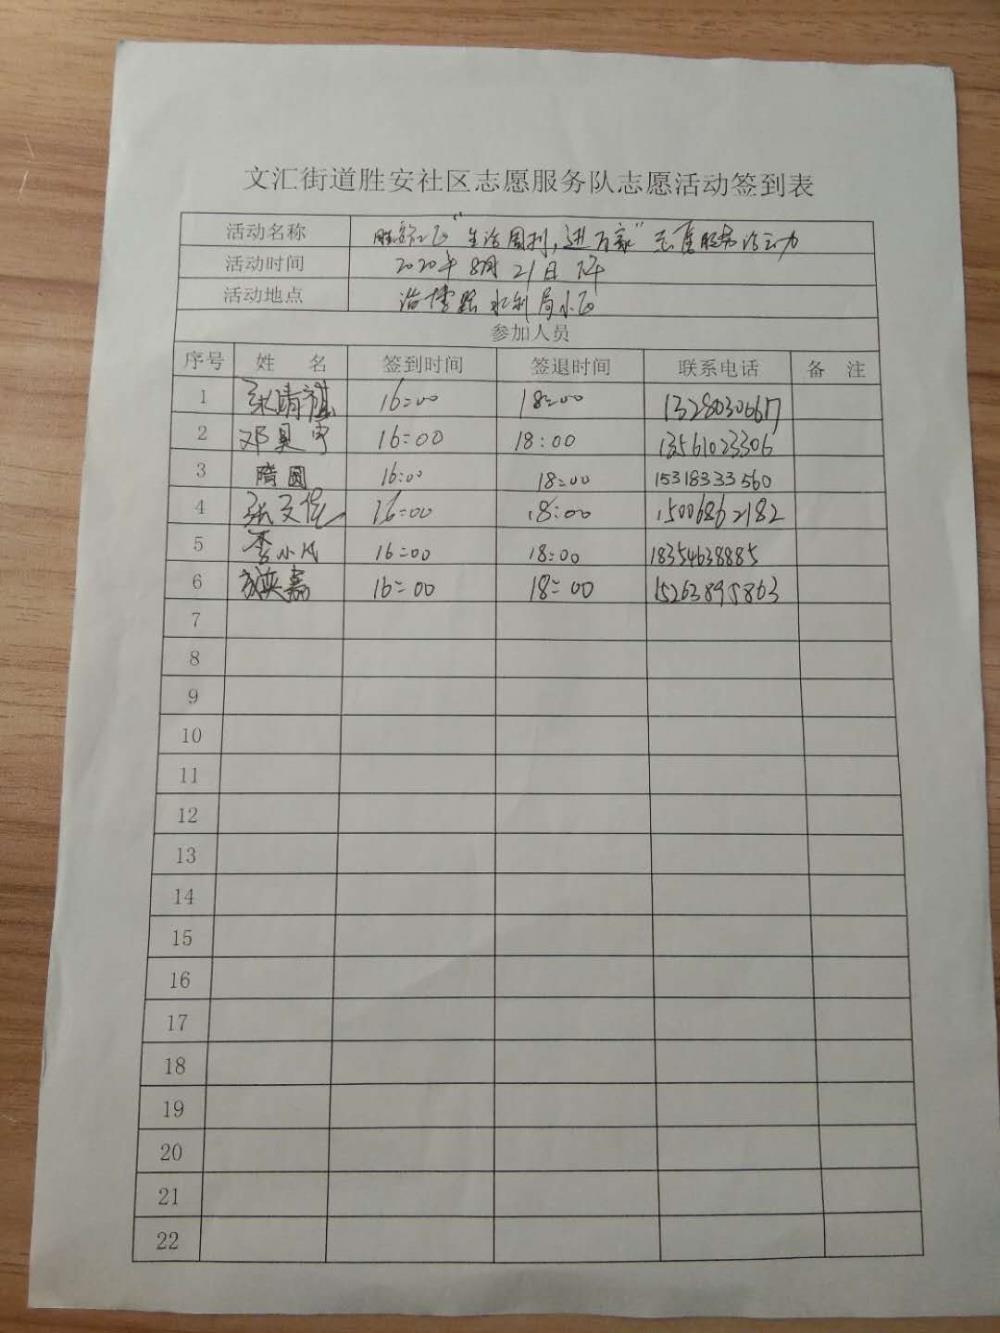 文汇街道胜安社区志愿服务队志愿活动签到表
活动名称 胜安社区"生活周刊,进万家"志愿服务活动
活动时间 2020年8月21日 下午
活动地点 水利局小区
参加人员
序号 姓 名 签到时间 签退时间 联系电话 备 注
1 16:00 18:00
2 邓昊宇 16:00 18:00 13561023306
3 腾圆 16:00 18:00 15318333560
4 张文悦 16:00 18:00 15006862182
5 李小凡 16:00 18:00 18354638885
6 16:00 18:00 15263895863
7
8
9
10
11
12
13
14
15
16
17
18
19
20
21
22